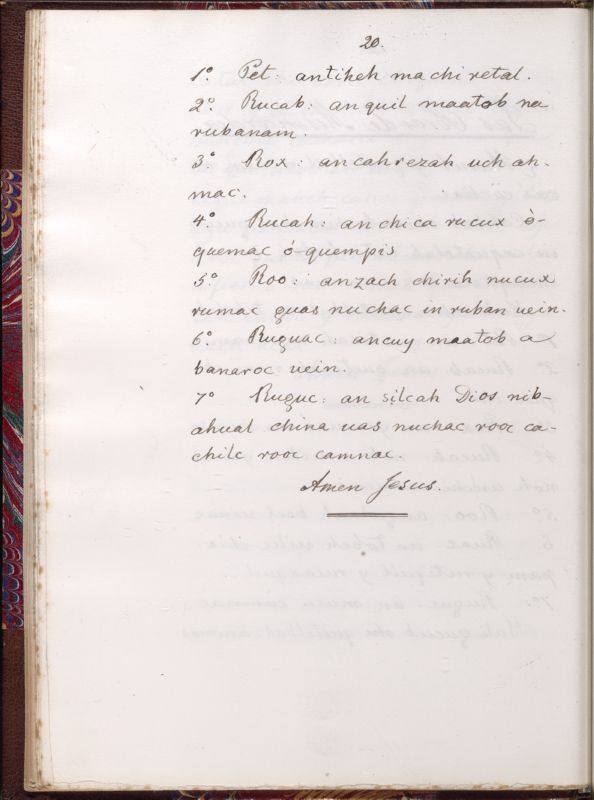 20.
1º Pet: antiheh machi retal.
2º Rucab: anquil maatob na
rubanam.
3º Rox: ancahrezah uch ah-
mac.
4º Rucah: anchica rucux ò-
quemac ó-quempis
5º Roo: anzach chirih nucux
rumac guas nuchac in ruban uein.
6º Ruguac: ancuy maatob a
banaroc uein.
7º Ruguc: an silcah Dios nib-
ahual china uas nuchac rooc ca-
chilc rooc camnac.
Amen Jesus.